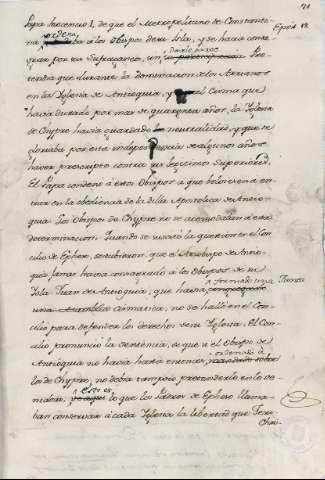 Papa Inocencio I, de que el Metropolitano de Constanti-
na ordena à los Obispos de su Isla, y se hacia
por sus Sufraganeos, un
tendia que durante la Dominacion de los Arrianos
en la Iglesia de Antioquia, y el Cisma que
havia durado por mas de quarenta años, la Iglesia
de Chypre havia guardado neutralidad, y que se
gloriaba por esta independencia de algunos años
haver prescripto contra sus legitimos Superiores.
El Papa condenò à estos Obispos à que bolviesen à en-
trar en la obediencia de la Silla Apostolica de Antio-
quia. Los Obispos de Chypre no se acomodaron à esta
determinacion. Quando se suscitò la question en el Con-
cilio de Epheso, sostubieron que el Arzobispo de Antio-
quia jamas havia consagrado à los Obispos de su
Isla. Juan de Antioquia, que havia formado una Junta
una Asamblea cismatica, no se hallò en el Con-
cilio para defender los derechos de su Iglesia. El Con-
cilio pronunciò la sentencia, de que si el Obispo de
Antioquia no havia hasta entonces ordenado à
los de Chypre, no debia tampoco pretenderlo en lo ve-
nidero. Esto es lo que los Padres de Epheso llama-
ban conservar à cada Iglesia la libertad que Jesu-
Chris-